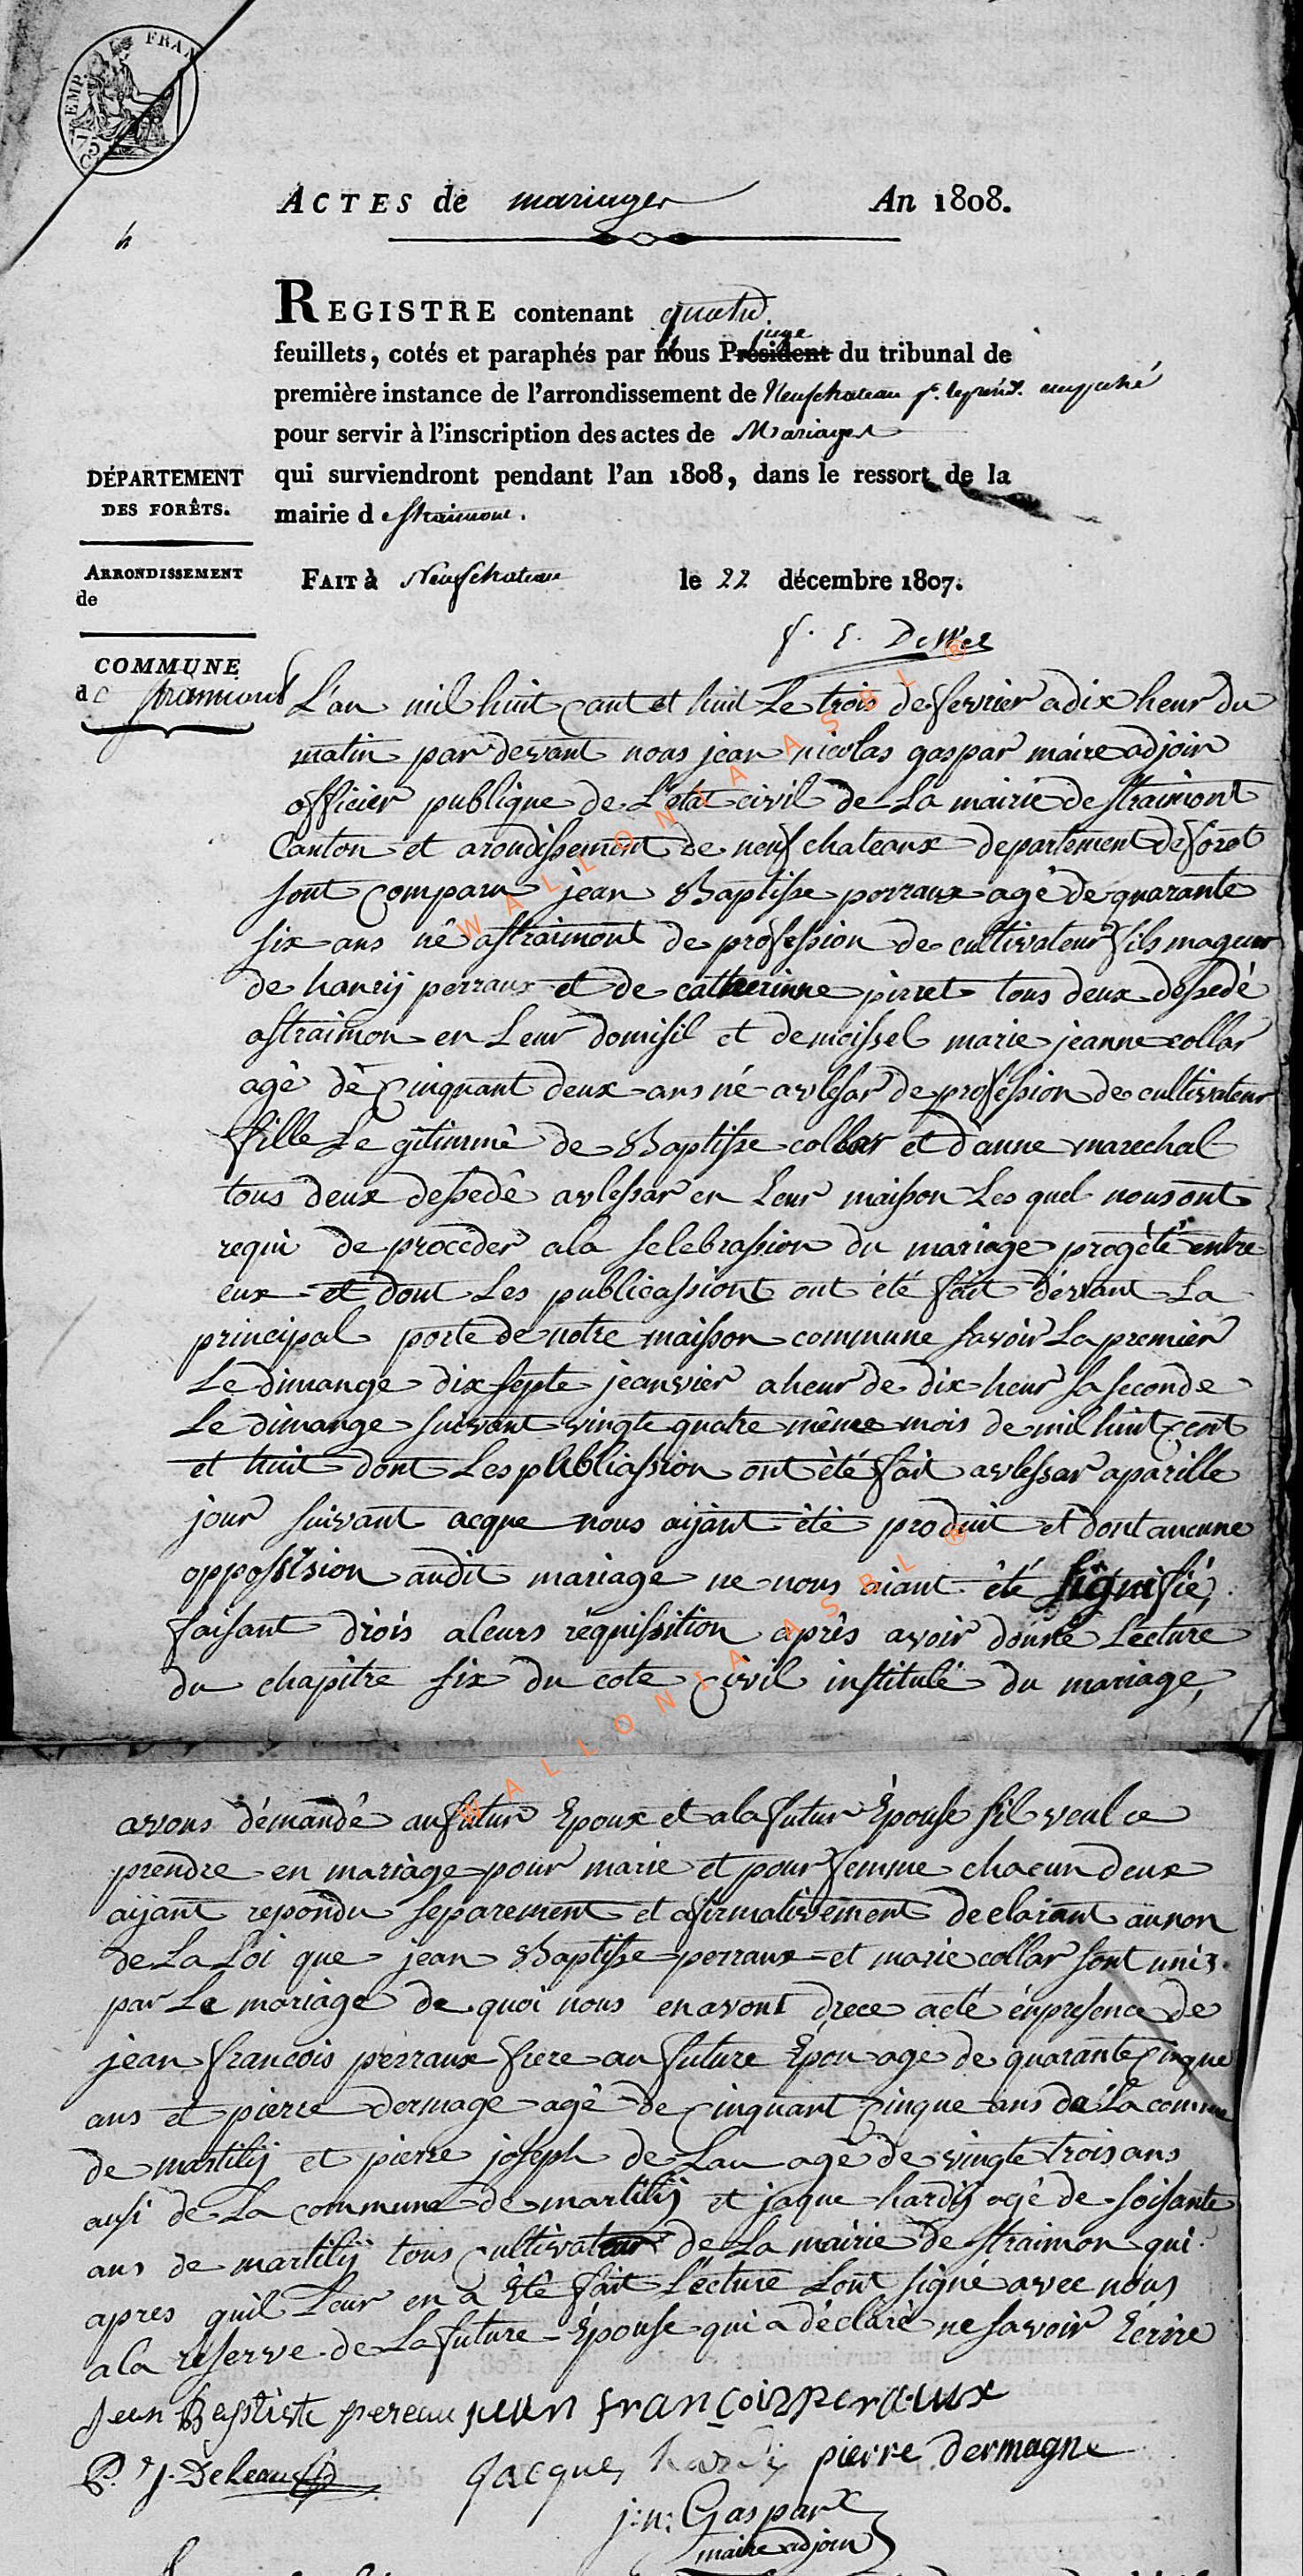 EMP. FRAN
75 C
ACTES de mariages An 1808.
REGISTRE contenant quatre
juge
feuillets, cotés et paraphés par nous Président du tribunal de
première instance de l'arrondissement de Neufchateau pr. le présdt. empeché
pour servir à l'inscription des actes de Mariages
DÉPARTEMENT
DES FORÊTS.
qui surviendront pendant l'an 1808, dans le ressort de la
mairie de straimont.
ARRONDISSEMENT
de
FAIT à Neufchateau le 22 décembre 1807.
COMMUNE
de straimont
L'an mil huit cant et huit Le trois de fevrier a dix heur du
matin par devant nous jean nicolas gaspar maire adjoin
officier publique de L'etat civil de La mairie de straimont
Canton et arondissement de neufchateaux departement de foret
sont comparu jean Baptiste perraux agé de quarante
six ans né a straimont de profession de cultivateur fils mageur
de hanrÿ perraux et de catherinne pirret tous deux dessedé
a straimon en Leur domisil et demoissel marie jeanne collar
agé de cinquant deux ans né a vlesar de profession de cultivateur
fille Le gitimmé de Baptiste collar et d'anne marechal
tous deux dessedé a vlessar en Leur maisson Les quel nous ont
requi de proceder a la selebrassion du mariage progété entre
eux et dont Les publicassiont ont été fait dévant La
principal porte de notre maisson commune savoir La premier
Le dimange dix septe jeanvier a heur de dix heur la seconde
Le dimange suivant vingte quatre même mois de mil huit cent
et huit dont Les publiassion ont été fait a vlessar a parille
jour suivant acque nous aÿant été produit et dont aucune
oppossision audit mariage ne nous aiant été signifié,
faisant drois a leurs réquissition après avoir donné Lecture
du chapitre six du cote civil institulé du mariage,
avons démandé au futur Epoux et a la futur Épouse sil veul ce
prendre en mariage pour marie et pour femme chacun deux
aÿant repondu separement et afirmativement declarant au non
de La Loi que jean Baptiste perraux et marie collar sont unis
par Le mariage de quoi nous en avont drece acté én presence de
jean francois perraux frere au future Epou age de quarante cinque
ans et pierre dermage agé de cinquant cinque ans de La comune
de martilÿ et pierre joseph de Lau agé de vingte trois ans
ausi de La commune de martilÿ et jaque hardÿ agé de soisante
ans de martilÿ tous cultivateur de La mairie de straimon qui
apres quil Leur en a été fait Lecture Lont signé avec nous
a la réserve de La future Épouse qui a déclaré ne savoir Ecrire
Jean Baptiste pereau jean françois peraux
P. J. Deleau
Jacques hardÿ pierre dermagne
j: n: Gaspar
maire adjoin
WALLONIA ASBL ®
WALLONIA ASBL ®